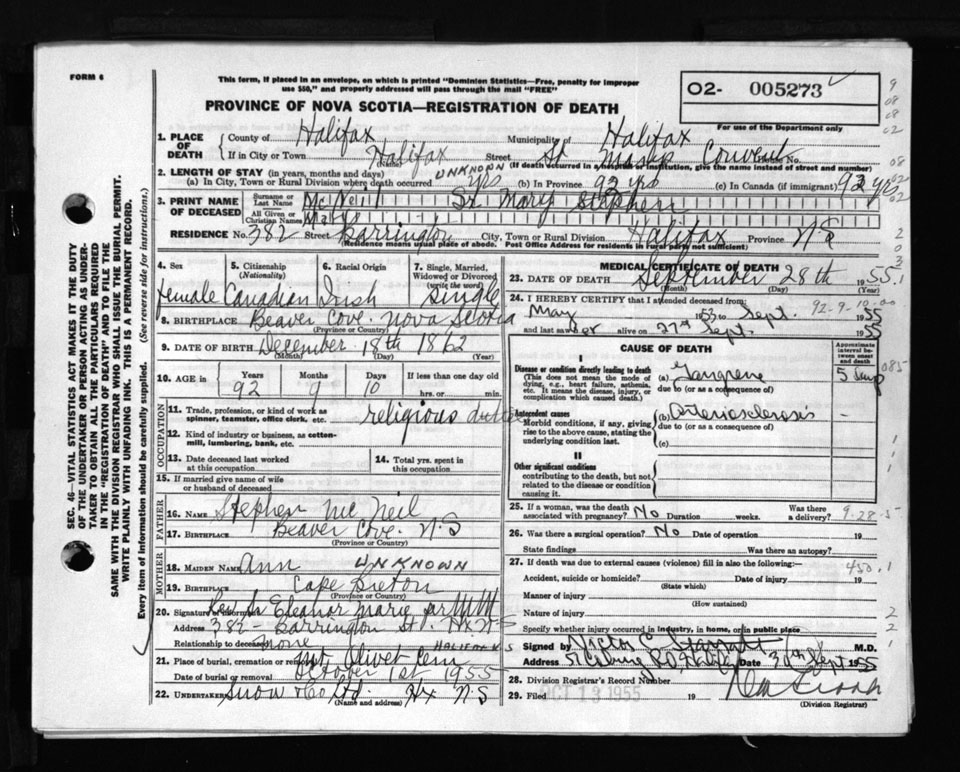 FORM 6
This form, if placed in an envelope, on which is printed "Dominion Statistics—Free, penalty for improper
use $50," and properly addressed will pass through the mail "FREE"
PROVINCE OF NOVA SCOTIA—REGISTRATION OF DEATH
02- 005273
For use of the Department only
SEC. 46—VITAL STATISTICS ACT MAKES IT THE DUTY
OF THE UNDERTAKER OR PERSON ACTING AS UNDER-
TAKER TO OBTAIN ALL THE PARTICULARS REQUIRED
IN THE "REGISTRATION OF DEATH" AND TO FILE THE
SAME WITH THE DIVISION REGISTRAR WHO SHALL ISSUE THE BURIAL PERMIT.
WRITE PLAINLY WITH UNFADING INK. THIS IS A PERMANENT RECORD.
Every item of information should be carefully supplied. (See reverse side for instructions.)
1. PLACE OF DEATH County of Halifax Municipality of Halifax
If in City or Town Halifax Street St Marys Convent House No.
(If death occurred in a hospital or institution, give the name instead of street and number)
2. LENGTH OF STAY (in years, months and days)
(a) In City, Town or Rural Division where death occurred UNKNOWN yrs (b) In Province 92 yrs (c) In Canada (if immigrant) 92 yrs
3. PRINT NAME OF DECEASED
Surname or Last Name McNeil Sr Mary Stephen
All Given or Christian Names Mary
RESIDENCE No. 382 Street Barrington City, Town or Rural Division Halifax Province N S
(Residence means usual place of abode. Post Office Address for residents in rural parts not sufficient)
4. Sex female
5. Citizenship (Nationality) Canadian
6. Racial Origin Irish
7. Single, Married, Widowed or Divorced (write the word) Single
8. BIRTHPLACE Beaver Cove. Nova Scotia
(Province or Country)
9. DATE OF BIRTH December 18th 1862
(Month) (Day) (Year)
10. AGE in Years 92 Months 9 Days 10 If less than one day hrs. or min.
OCCUPATION
11. Trade, profession, or kind of work as spinner, teamster, office clerk, etc. religious duties
12. Kind of industry or business, as cotton-mill, lumbering, bank, etc.
13. Date deceased last worked at this occupation
14. Total yrs. spent in this occupation
15. If married give name of wife or husband of deceased
FATHER
16. NAME Stephen Mc Neil
17. BIRTHPLACE Beaver Cove. N-S
(Province or Country)
MOTHER
18. MAIDEN NAME Ann UNKNOWN
19. BIRTHPLACE Cape Breton
(Province or Country)
20. Signature of informant Eleanor Marie
Address 382- Barrington St. Hx N-S
Relationship to deceased none HALIFAX N S
21. Place of burial, cremation or removal Mt Olivet Cem
Date of burial or removal October 1st 1955
22. UNDERTAKER Snow & Co Ltd. Hx N S
(Name and address)
MEDICAL CERTIFICATE OF DEATH
23. DATE OF DEATH September 28th 1955
(Month) (Day) (Year)
24. I HEREBY CERTIFY that I attended deceased from:
May 1953 to Sept. 1955
92-9-10-00
and last saw her alive on 27th Sept. 1955
CAUSE OF DEATH
Approximate interval between onset and death
I
Disease or condition directly leading to death
(This does not mean the mode of dying, e.g., heart failure, asthenia, etc. It means the disease, injury, or complication which caused death.)
(a) Gangrene 5 days
due to (or as a consequence of)
Antecedent causes
Morbid conditions, if any, giving rise to the above cause, stating the underlying condition last.
(b) arteriosclerosis -
due to (or as a consequence of)
(c)
II
Other significant conditions contributing to the death, but not related to the disease or condition causing it.
25. If a woman, was the death associated with pregnancy? No Duration weeks. Was there a delivery?
9-28-5
26. Was there a surgical operation? No Date of operation 19
State findings Was there an autopsy?
27. If death was due to external causes (violence) fill in also the following:-
450.1
Accident, suicide or homicide? (State which) Date of injury 19
Manner of injury (How sustained)
Nature of injury
Specify whether injury occurred in industry, in home, or in public place
Signed by Victor M.D.
Address 57 Coburg Rd Date 30th Sept 1955
28. Division Registrar's Record Number
29. Filed OCT 13 1955 19
(Division Registrar)